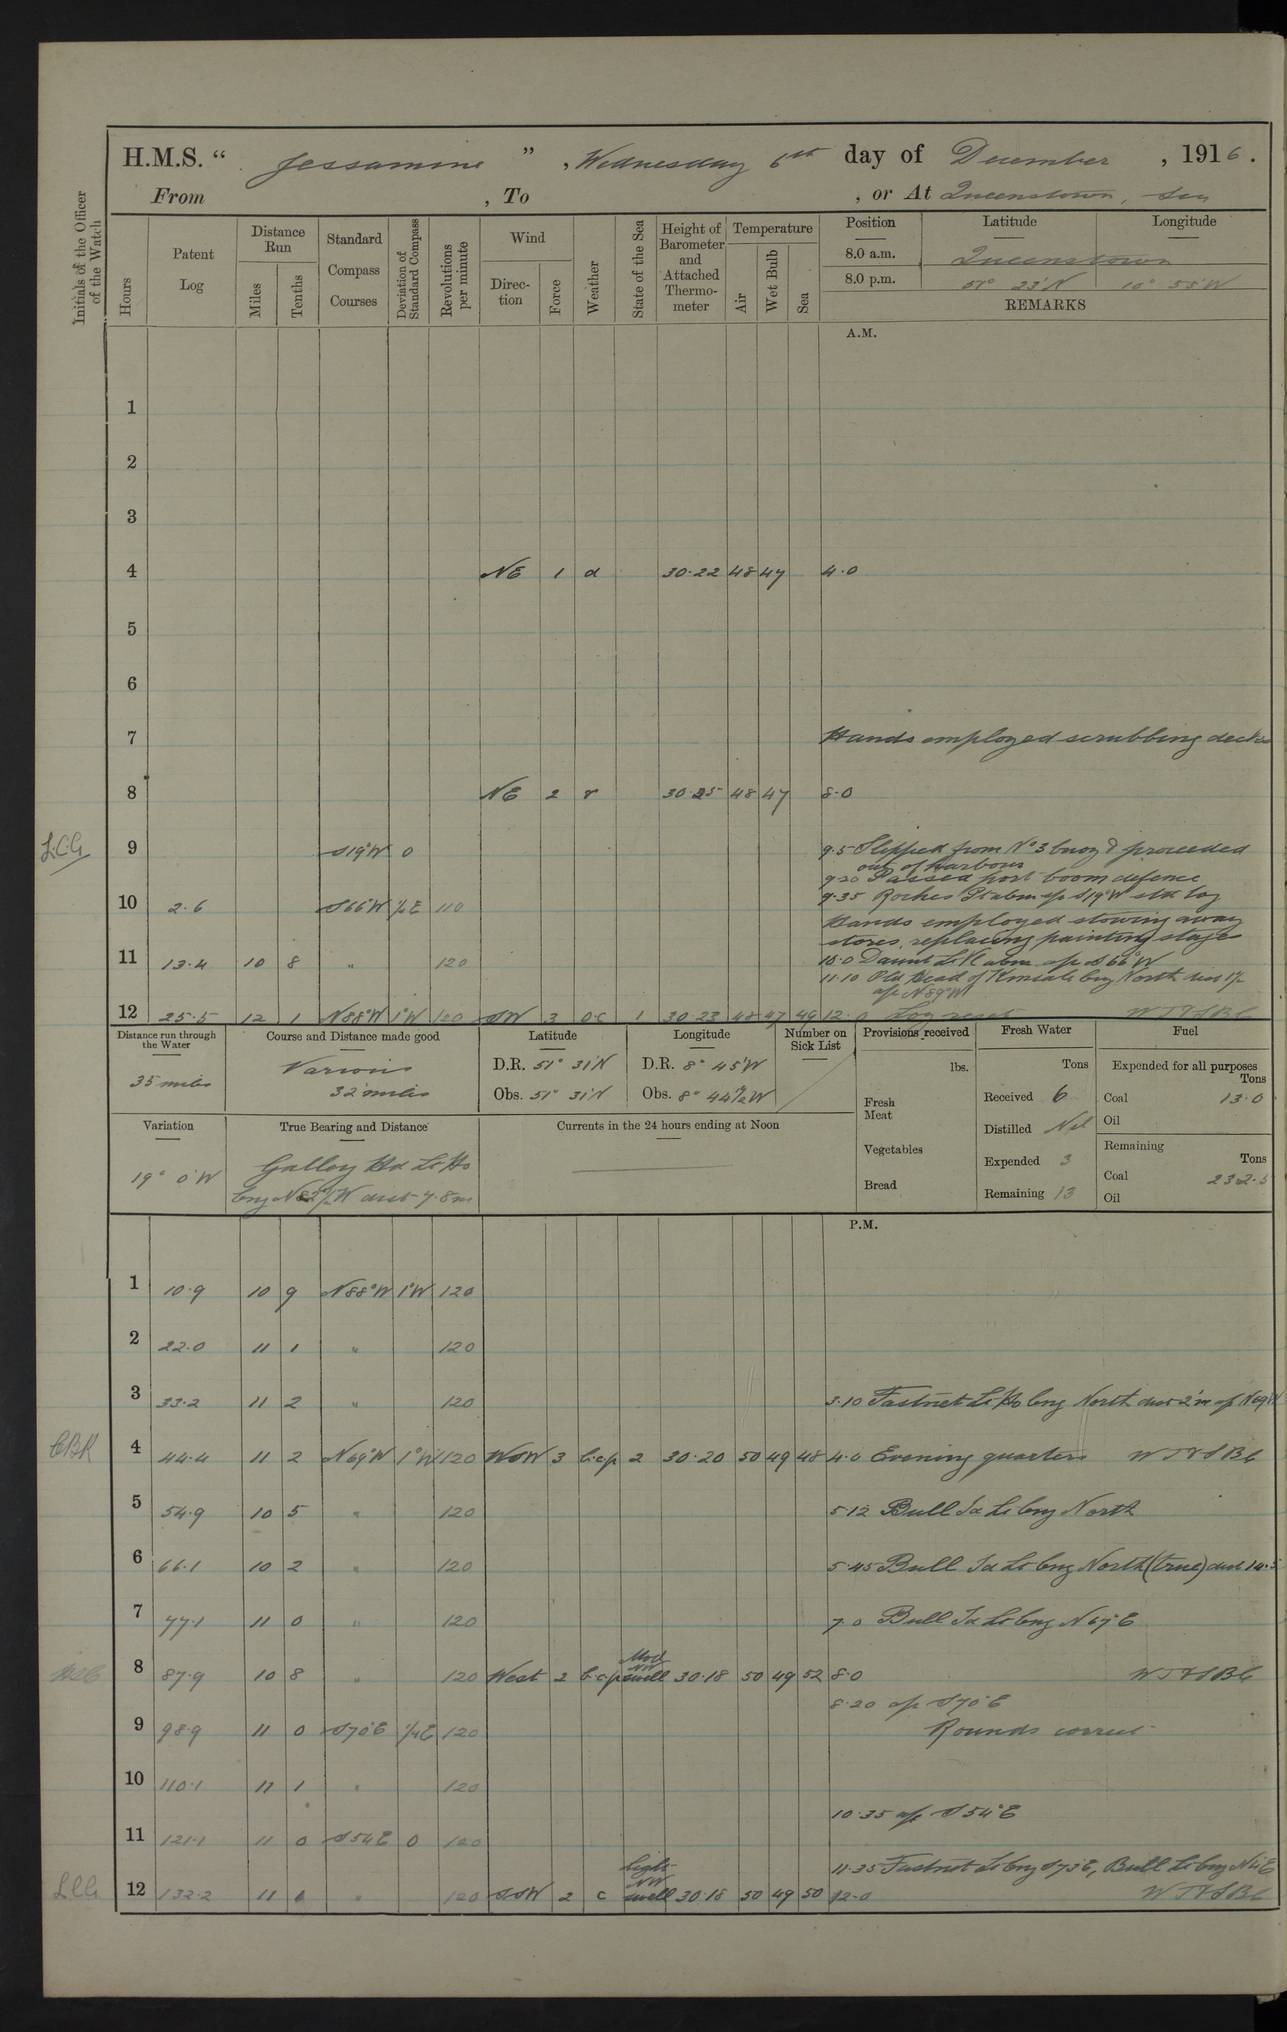 H.M.S. “ Jessamine ” , Wednesday 6th day of December , 1916.
From , To , or At Queenstown, Sea
Initials of the Officer of the Watch
Hours Patent Log Distance Run Miles Tenths Standard Compass Courses Deviation of Standard Compass Revolutions per minute Wind Direction Force Weather State of the Sea Height of Barometer and Attached Thermometer Temperature Air Wet Bulb Sea
Position Latitude Longitude
8.0 a.m. Queenstown
8.0 p.m. 51° 23'N 10° 55'W
REMARKS
A.M.
1
2
3
4 NE 1 d 30.22 48 47 4.0
5
6
7 Hands employed scrubbing decks
8 NE 2 r 30.25 48 47 8.0
L.C.G. 9 S19°W 0 9.5 Slipped from No 3 buoy & proceeded
out of harbour
9.20 Passed port boom defence
10 2.6 S66°W ½E 110 9.35 Roches Pt abm a/c S19°W set log
Hands employed stowing away
stores, replacing painting stage
11 13.4 10 8 " 120 10.0 Daunt Lt V abm a/c S66°W
11.10 Old Head of Kinsale brg North dist 1½
a/c N89°W
12 25.5 12 1 N88°W 1°W 120 SW 3 o.c 1 30.23 48 47 49 12.0 Log reset
Distance run through the Water Course and Distance made good Latitude Longitude Number on Sick List Provisions received Fresh Water Fuel
35 miles Various 32 miles D.R. 51° 31'N D.R. 8° 45'W lbs. Tons Expended for all purposes Tons
Obs. 51° 31'N Obs. 8° 44½'W Fresh Meat Received 6 Coal 13.0
Distilled Nil Oil
Variation True Bearing and Distance Currents in the 24 hours ending at Noon Vegetables Expended 3 Remaining Tons
19° 0'W Galley Hd Lt Ho Bread Remaining 13 Coal 232.5
brg N82½W dist 7.8m Oil
P.M.
1 10.9 10 9 N88°W 1°W 120
2 22.0 11 1 " 120
3 33.2 11 2 " 120 3.10 Fastnet Lt Ho brg North dist 2'm a/c N69W
4 44.4 11 2 N69°W 1°W 120 WSW 3 b.c.p 2 30.20 50 49 48 4.0 Evening quarters
5 54.9 10 5 " 120 5.12 Bull Id Lt brg North
6 66.1 10 2 " 120 5.45 Bull Id Lt brg North (true) dist 14.5
7 77.1 11 0 " 120 7.0 Bull Id Lt brg N67°E
8 87.9 10 8 " 120 West 2 b.c.p Mod NW swell 30.18 50 49 52 8.0
8.20 a/c S70°E
9 98.9 11 0 S70°E ¼E 120 Rounds correct
10 110.1 11 1 " 120
10.35 a/c S54°E
11 121.1 11 0 S54E 0 120
11.35 Fastnet Lt brg S73°E, Bull Lt brg N4°E
12 132.2 11 1 " 120 SSW 2 c Light NW swell 30.18 50 49 50 12.0